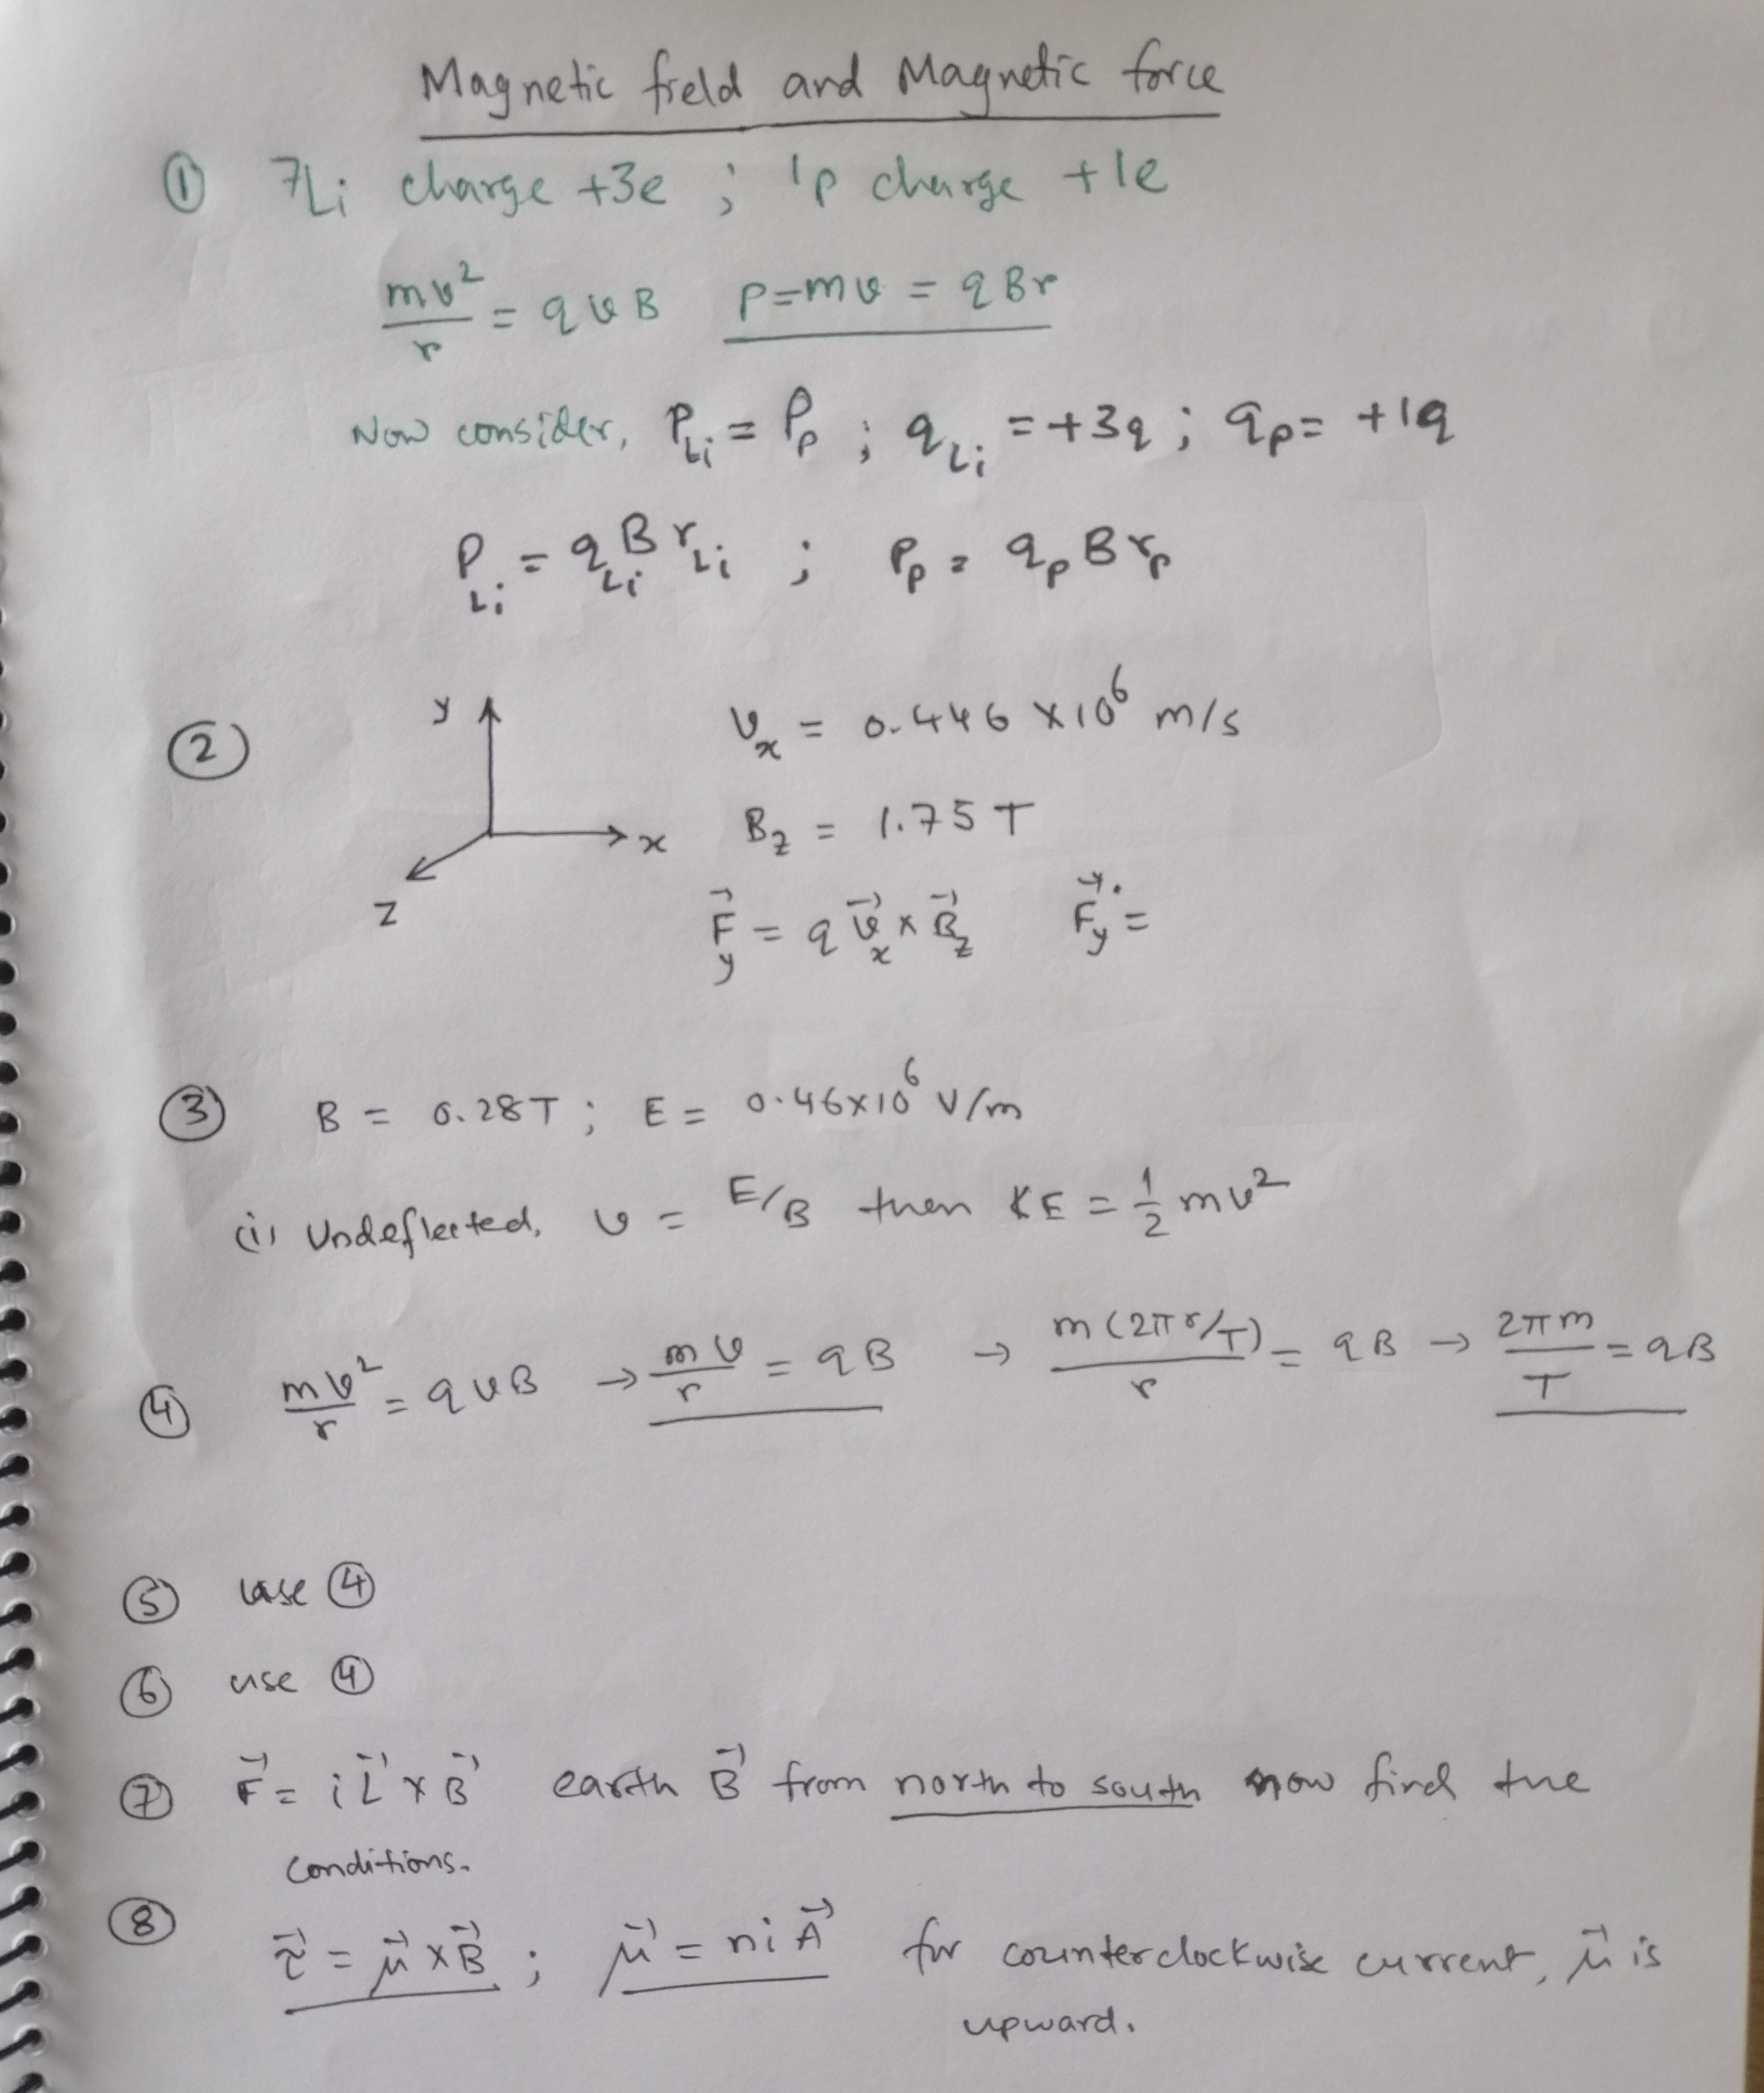 Magnetic field and Magnetic force
① 7Li charge +3e ; 1p charge +1e
mv²/r = qvB   p=mv = qBr
Now consider, P_Li = P_p ; q_Li = +3q ; q_p = +1q
P_Li = q_Li B r_Li ; P_p = q_p B r_p
② y x z
v_x = 0.446 × 10⁶ m/s
B_z = 1.75 T
F⃗_y = q v⃗_x × B⃗_z   F⃗_y =
③ B = 0.28T ; E = 0.46×10⁶ V/m
(i) Undeflected, v = E/B then KE = ½ mv²
④ mv²/r = qvB → mv/r = qB → m(2πr/T)/r = qB → 2πm/T = qB
⑤ use ④
⑥ use ④
⑦ F⃗ = i L⃗ × B⃗ earth B⃗ from north to south now find the
conditions.
⑧ τ⃗ = μ⃗ × B⃗ ; μ⃗ = n i A⃗ for counterclockwise current, μ⃗ is
upward.